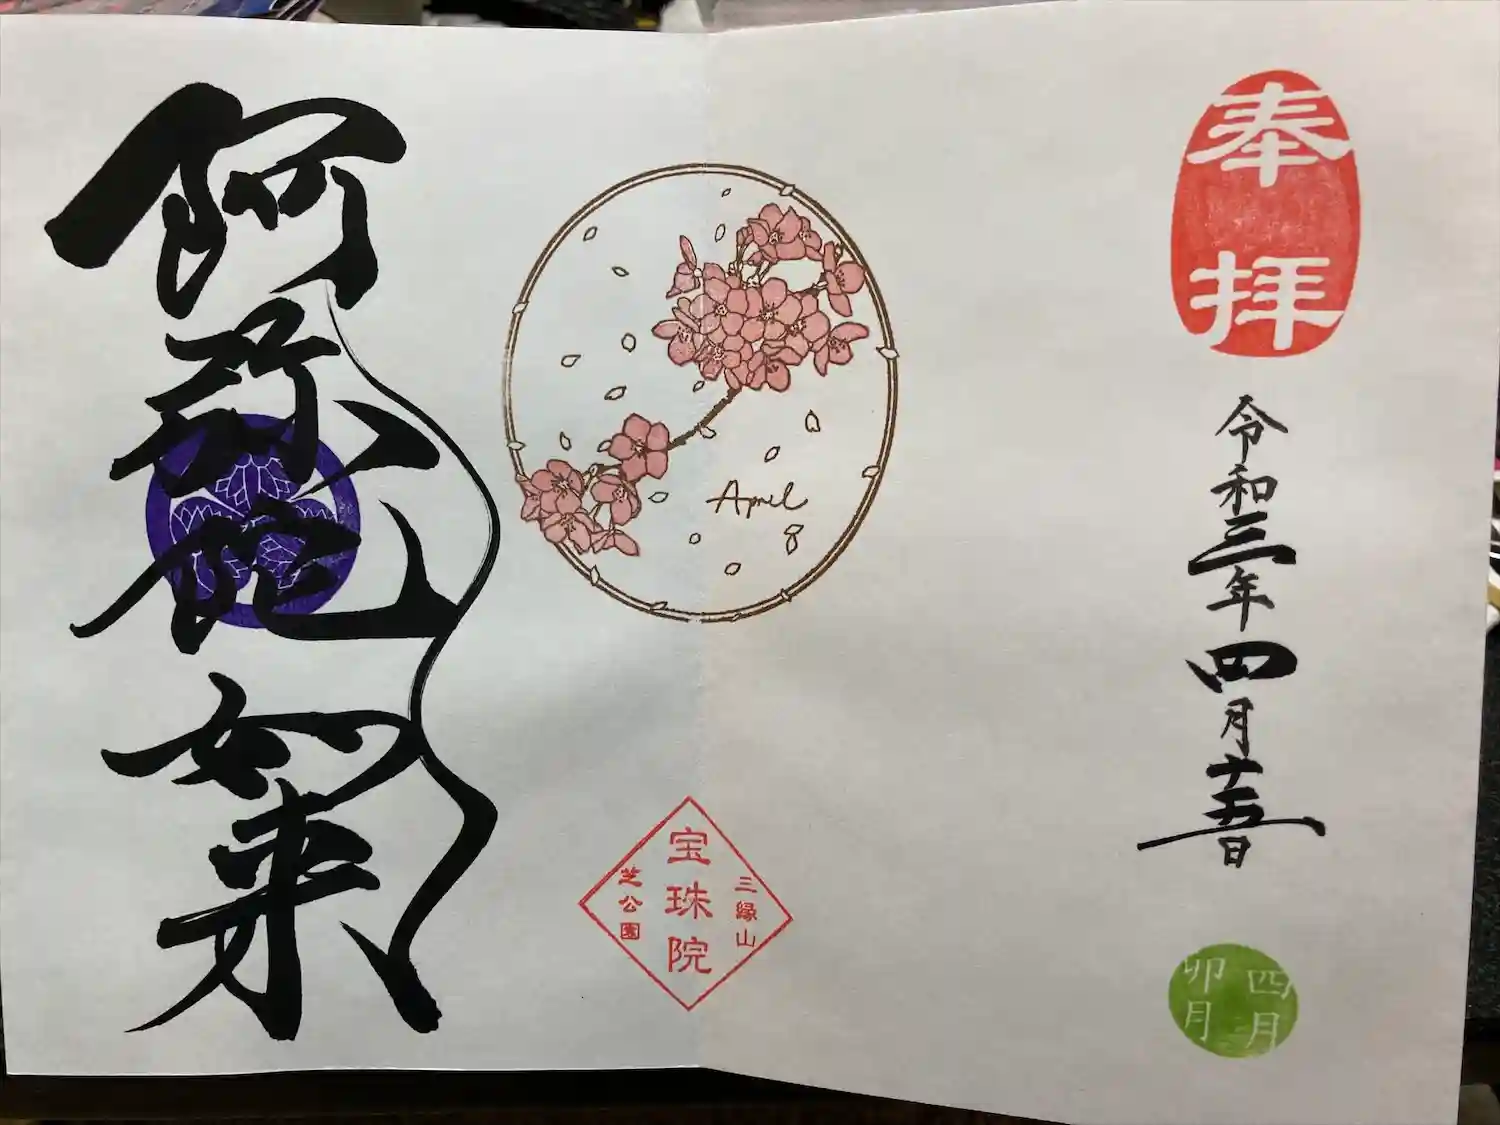 奉拝
令和三年四月十五日
四月
卯月
April
8
三縁山
宝珠院
芝公園
阿弥陀如来